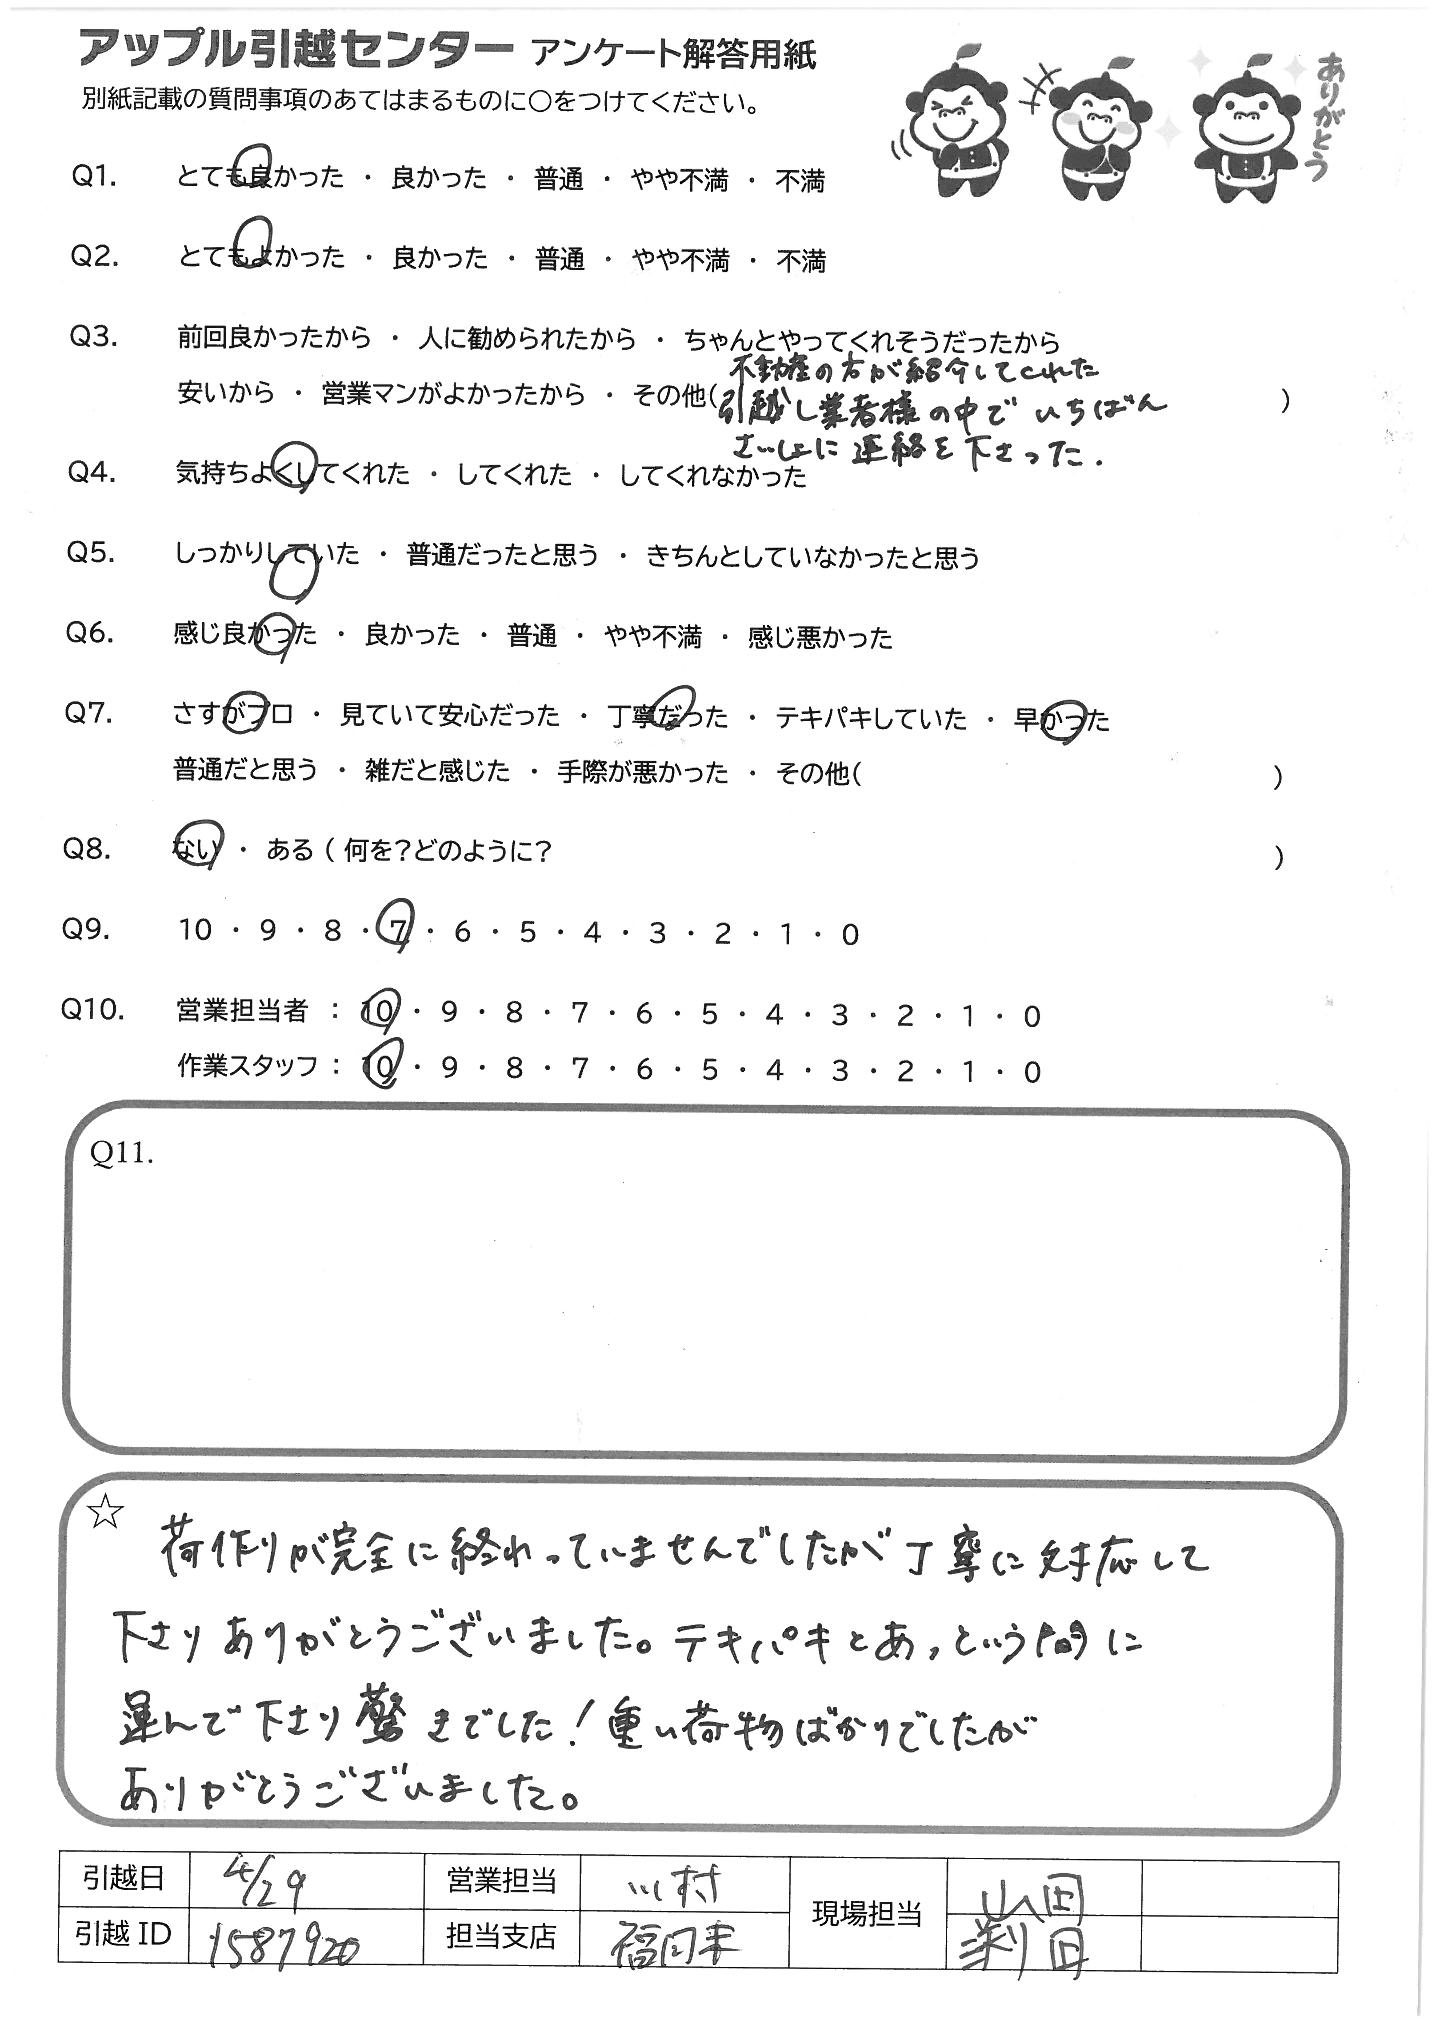 アップル引越センター アンケート解答用紙
別紙記載の質問事項のあてはまるものに○をつけてください。
ありがとう
Q1. とても良かった ・ 良かった ・ 普通 ・ やや不満 ・ 不満
Q2. とてもよかった ・ 良かった ・ 普通 ・ やや不満 ・ 不満
Q3. 前回良かったから ・ 人に勧められたから ・ ちゃんとやってくれそうだったから
不動産の方が紹介してくれた
安いから ・ 営業マンがよかったから ・ その他( 引越し業者様の中でいちばん )
さいしょに連絡を下さった.
Q4. 気持ちよくしてくれた ・ してくれた ・ してくれなかった
Q5. しっかりしていた ・ 普通だったと思う ・ きちんとしていなかったと思う
Q6. 感じ良かった ・ 良かった ・ 普通 ・ やや不満 ・ 感じ悪かった
Q7. さすがプロ ・ 見ていて安心だった ・ 丁寧だった ・ テキパキしていた ・ 早かった
普通だと思う ・ 雑だと感じた ・ 手際が悪かった ・ その他( )
Q8. ない ・ ある ( 何を?どのように? )
Q9. 10 ・ 9 ・ 8 ・ 7 ・ 6 ・ 5 ・ 4 ・ 3 ・ 2 ・ 1 ・ 0
Q10. 営業担当者 : 10 ・ 9 ・ 8 ・ 7 ・ 6 ・ 5 ・ 4 ・ 3 ・ 2 ・ 1 ・ 0
作業スタッフ : 10 ・ 9 ・ 8 ・ 7 ・ 6 ・ 5 ・ 4 ・ 3 ・ 2 ・ 1 ・ 0
Q11.
☆ 荷作りが完全に終わっていませんでしたが丁寧に対応して
下さりありがとうございました。テキパキとあっという間に
運んで下さり驚きでした!重い荷物ばかりでしたが
ありがとうございました。
引越日 4/29 営業担当 川村 現場担当 山田
引越 ID 1587920 担当支店 福岡東